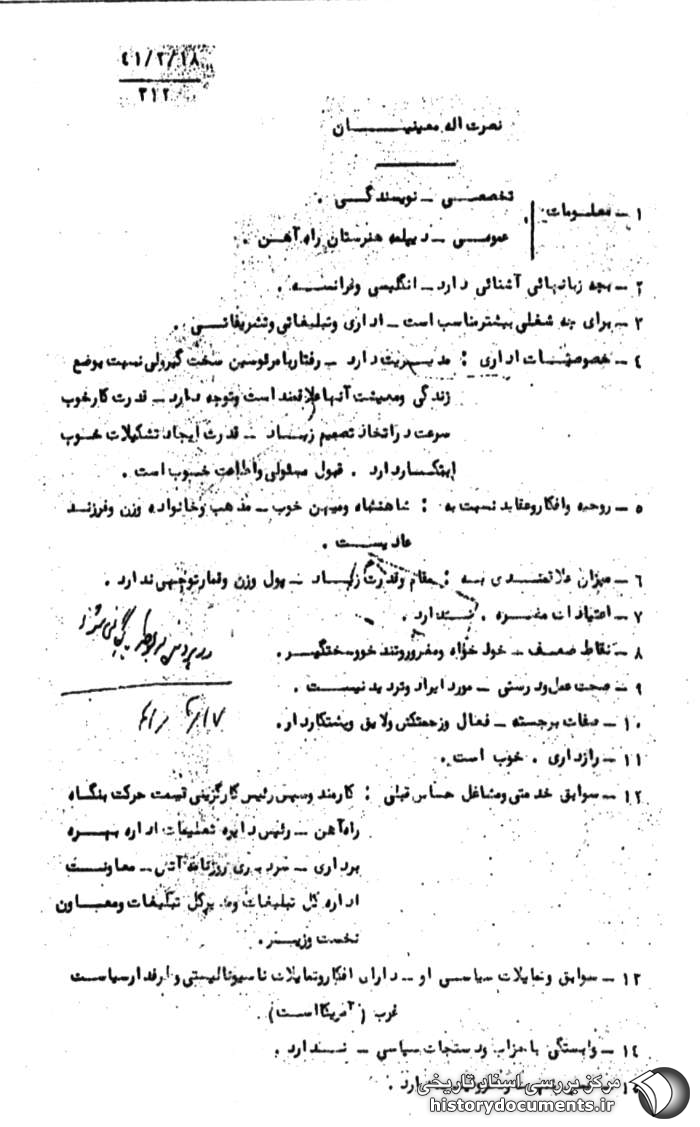 ۴۱/۲/۱۸
۳۱۲
نصرت اله معینیـــان
۱ ـ معلـومات:
تخصصـی ـ نویسندگـی .
عمومـی ـ دیپلمه هنرستان راه آهـن .
۲ ـ بچه زبانهائی آشنائی دارد ـ انگلیسی وفرانسـه .
۳ ـ برای چه شغلی بیشترمناسب است ـ اداری وتبلیغاتی وتشریفاتـی .
۴ ـ خصوصیـات اداری : مدیـریت دارد ـ رفتاربامرئوسین سخت گیرولی نسبت بوضع
زندگی ومعیشت آنهاعلاقمند است وتوجه دارد ـ قدرت کارخوب
سرعت دراتخاذ تصمیم زیـاد ـ قدرت ایجاد تشکیلات خـوب
ابتکـاردارد . قبول مسئولی واطاعت خـوب است .
۵ ـ روحیه وافکاروعقاید نسبت به : شاهنشاه ومیهن خوب ـ مذهب وخانواده وزن وفرزنـد
عادیسـت .
۶ ـ میزان علاقمنـدی بـه : مقام وقدرت زیـاد ـ پول وزن وقمارتوجهی ندارد .
۷ ـ اعتیادات مضـره . نـدارد .
۸ ـ نقاط ضعـف ـ خود خواه ومغروروتند خووسختگیـر .
۹ ـ صحت عمل ودرستی ـ مورد ایراد وتردید نیسـت .
۴۱/۲/۱۷
۱۰ ـ صفات برجسته ـ فعال وزحمتکش ولایق وپشتکاردار .
۱۱ ـ رازداری . خوب است .
۱۲ ـ سوابق خدمتی ومشاغل حساس قبلی : کارمند وسپس رئیس کارگزینی قسمت حرکت بنگـاه
راه آهن ـ رئیس دایره تعلیمات اداره بهـره
برداری ـ سردبیری روزنامه آتش ـ معاونـت
اداره کل تبلیغات ومدیرکل تبلیغات ومعـاون
نخست وزیـر .
۱۳ ـ سوابق وتمایلات سیاسـی او ـ دارای افکاروتمایلات ناسیونالیستی وطرفدارسیاسـت
غرب (آمریکااسـت) .
۱۴ ـ وابستگی باحزاب ودستجات سیاسی ـ نـدارد .
مرکز بررسی اسناد تاریخی
historydocuments.ir